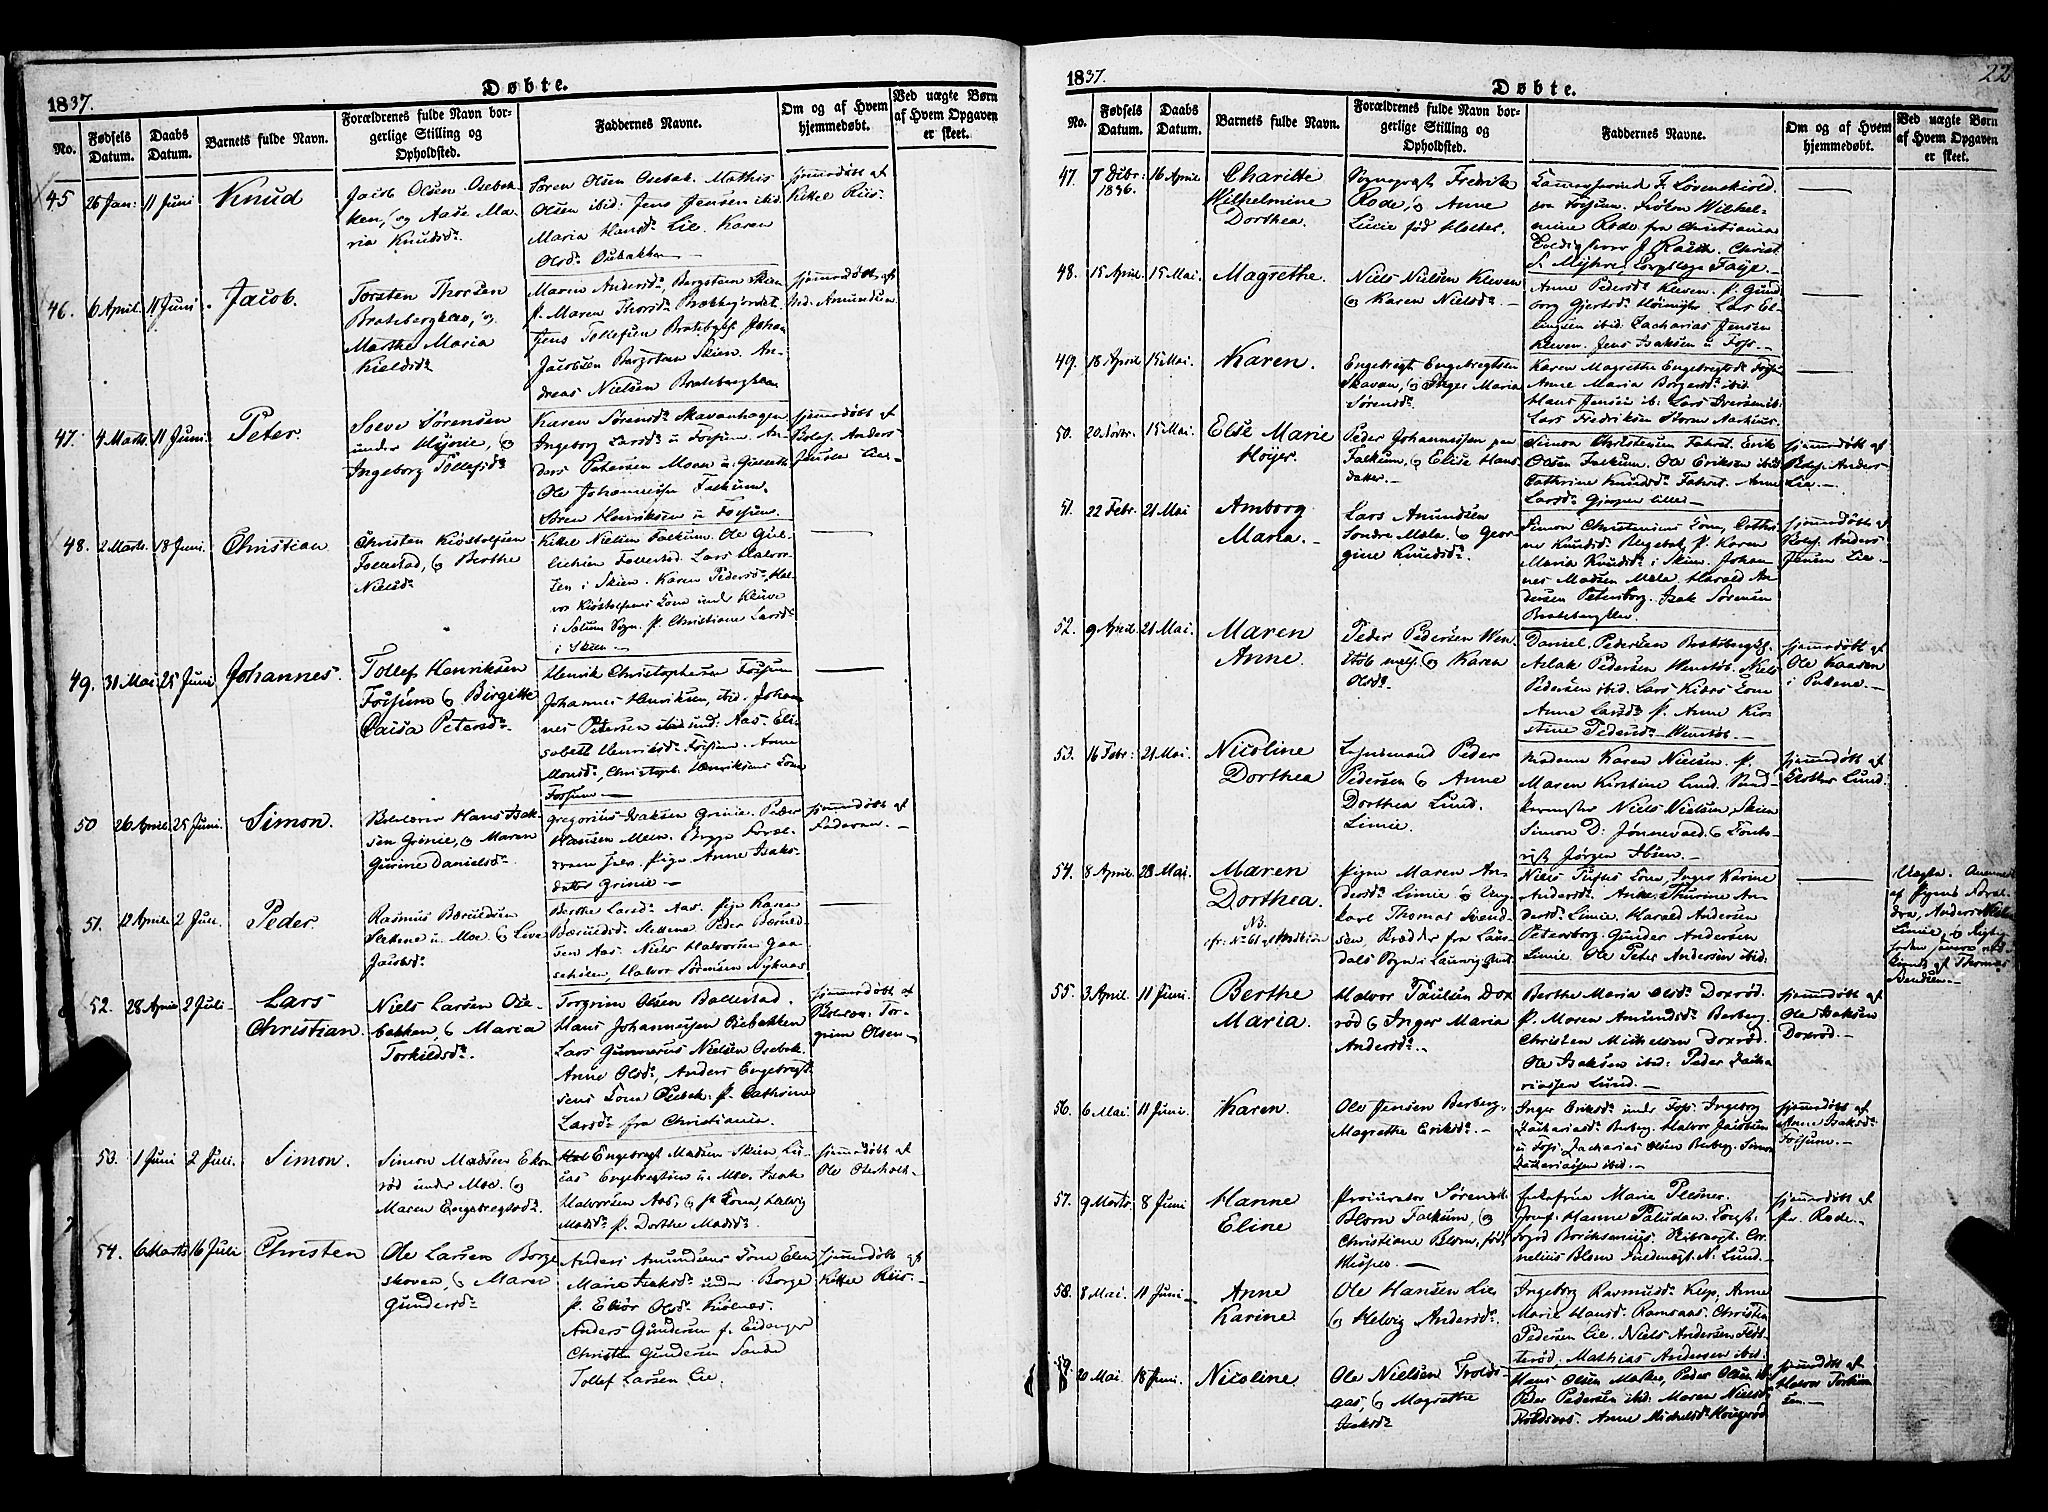 1837.
Døbte.
No.
Fødsels Datum.
Daabs Datum.
Barnets fulde Navn.
Forældrenes fulde Navn borgerlige Stilling og Opholdsted.
Faddernes Navne.
Om og af Hvem hjemmedøbt.
Ved uægte Børn af Hvem Opgaven er skeet.
45 26 Jan: 11 Juni Knud
Jacob Olsen Osebakken, og Aase Maria Knudsdr
Søren Olsen Osebak. Mathis
Olsen ibid: Jens Jensen ibid.
Maria Hansdr Lie. Karen
Olsdr Osebakken
hjemmedøbt af
Kittel Riis.
46. 6 April 11 Juni Jacob.
Torsten Thorsen
Bratsbergkleo, og
Marthe Maria
Kieldsdr
Maren Andersdr, Bergstem Skien
p. Maren Thorsdr Brekkejordet.
Jens Tollefsen Bratsbgkl Johan
Jacobsen Bergsten Skien. Andreas Nielsen
hjemmedøbt af
Amundsen
47. 4 Marts 11 Juni Peter.
Soeve Sørensen
under Mynie, og
Ingeborg Tollefsdr
Karen Sørensdr Skavanhagen
Ingeborg Larsdr u Fossum. Anders Petersen
Ole Johannesen Falkum.
Søren Henriksen u Fossum.
hjemmedøbt af
Anders
Jensen Lie
48. 2 Marts. 18 Juni. Christian
Christen Kiøstolfsen
Follestad, og Berthe
Nielsdr
Kittel Nielsen Falkum. Ole Gullichsen Follestad. Lars Halvorsen i Skien. Karen Pedersdr, Halvor Kiøstolfsens Kone under Kleve
i Solum Sogn. p. Christiane Larsdr
i Skien
49. 31 Mai 25 Juni Johannes.
Tollef Henriksen
Fossum og Birgitte
Caisa Petersdr
Henrik Christophersen Fossum
Johannes Henriksen, ibid. Johannes Petersen ibid und: Aas. Elisabeth Henriksdr Fossum. Anne
Monsdr, Christoph. Henriksens Kone
Fossum
50 26 April. 25 Juni. Simon.
Hans Isaksen Grinie, og Maren
Gurine Danielsdr
Gregorius Isaksen Grinie. Peder
Hansen Meln.
Pige Anne Isaksdatter Grinie
hjemmedøbt af
Faderen.
51. 12 April. 2 Juli. Peder.
Rasmus
Slettene u. Moe. og Live
Jacobsdr
Berthe Larsdr Aas. Pige Karen
Slettene Peder
Aas. Niels Halvorsen
Halvor Sørensen Nyhuus.
52. 28 April 2 Juli. Lars
Christian.
Niels Larsen Osebakken, og Maria
Torkildsdr.
Torgrim Olsen Bollestad.
Hans Johannesen Osebakken
Lars Gunnerus Nielsen Osebak.
Anne Olsdr, Anders Engebregtsens Kone Osebak. p. Cathrine
Larsdr fra Christiania.
hjemmedøbt af
Torgrim Olsen
53. 1 Juni 2 Juli. Simon.
Simon Madsen Ekornrød under Moe. og
Maren Engebregtsdr.
Engebregt Madsen Skien
Engebregtsen u. Moe. Isak
Halvorsen Aas, og Kone, Helvig
Madsdr p. Dorthe Madsdr.
hjemmedøbt af
Ole Oterholt
54. 6 Marts 16 Juli Christen
Ole Larsen Borgeskoven, og Maren
Gundersdr
Anders Amundsens Kone Elen
Marie Isaksdr under Borge
p. Eliør Olsdr Kiølnes.
Anders Gundersen f. Eidanger
Christen Gundersen Sande
Tollef Larsen Lie.
hjemmedøbt af
Kittel Riis.
1837.
Døbte.
22
No.
Fødsels Datum.
Daabs Datum.
Barnets fulde Navn.
Forældrenes fulde Navn borgerlige Stilling og Opholdsted.
Faddernes Navne.
Om og af Hvem hjemmedøbt.
Ved uægte Børn af Hvem Opgaven er skeet.
47. 7 Dcbr: 1836. 16 April Charitte
Wilhelmine
Dorthea.
Sognepræst Fredrik
Rode, og Anne
Lucie fød Holter.
Kammerherre F. Løvenskiold
paa Fossum. Frøken Wilhelmine Rode fra Christiania
Christ
Myhre, Corpslæge Faye.
48. 15 April. 15 Mai. Magrethe.
Niels Nielsen Kleven
og Karen Nielsdr.
Anne Pedersdr Kleven. p. Gundborg Gjertsdr
Lars Erlingsen ibid: Zacharias Jensen
Kleven. Jens Isaksen u Foss.
49. 18 April 15 Mai. Karen.
Engebregt Engebregtsen
Skavan, og Inger Maria
Sørensdr.
Karen Magrethe Engebregtsdr Fossum
Anne Maria Borgersdr ibid.
Hans Jensen ib. Lars Iversen ib.
Lars Fredriksen Storm Aarhuus.
50. 20 Novbr. 15 Mai. Else Marie
Høyer.
Peder Johannessen paa
Falkum, og Elise Hansdatter.
Simon Christensen Fahret. Erik
Olsen Falkum. Ole Eriksen ibid
Cathrine Knudsdr Fahret. Anne
Larsdr Gjerpen lille
hjemmedøbt af
Anders
Lie.
51. 22 Febr. 21 Mai Amborg
Maria.
Lars Amundsen
Søndre Mæla. og Georgine Knudsdr.
Simon Christensens Kone, Cathrine Knudsdr p. Karen
Maria Knudsdr i Skien. Johannes Madsen Mæla. Harald Andersen Petersborg. Isak Sørensen
Bratsbergklev.
hjemmedøbt af
Anders
Jensen Lie
52. 9 April. 21 Mai. Maren
Anne.
Peder Pedersen Wenstøb og Karen
Olsdr.
Daniel Pedersen Bratsbergkl.
Aslak Pedersen Wenstøb. Niels
Pedersen ibid. Lars Kiærs Kone
Anne Larsdr p. Anne Kirstine Pedersdr Wenstøb.
hjemmedøbt af
Ole Kaasen
53. 16 Febr: 21 Mai. Nicoline
Dorthea
Lehnsmand Peder
Pedersen og Anne
Dorthea Lund.
Limie.
Madame Karen Nielsen. p.
Maren Kirstine Lund.
Niels Nielsen, Skien
Simon D: Jønnevald. og
Jørgen Ibsen.
hjemmedøbt af
Klokker Lund.
54. 8 April. 28 Mai. Maren
Dorthea.
NB.
Pigen Maren Andersdr Limie og Ungkarl Thomas Svendsen, Brædder fra Laurdals Sogn i Laurvig Amt.
Niels Tufus Kone, Inger Karine
Andersdr. Anne Thurine Andersdr Limie. Harald Andersen
Petersborg. Gunder Andersen
Limie. Ole Peter Andersen ibid.
Uægte.
55. 3 April. 11 Juni. Berthe
Maria.
Halvor Paulsen Doxrød og Inger Maria
Andersdr.
Berthe Maria Olsdr Doxrød.
p. Maren Amundsdr Berberg.
Christen Michelsen Doxrød.
Ole Isaksen ibid: Peder Zachariassen Lund.
hjemmedøbt af
Ole Isaksen
Doxrød.
56. 6 Mai. 11 Juni. Karen.
Ole Jensen Berberg,
Magrethe Eriksdr.
Inger Eriksdr under Foss. Ingeborg
Zachariasdr Berberg Halvor Jacobsen
u Foss, Zacharias Olsen Berberg. Simon
Zachariassen ibid.
hjemmedøbt af
Anne Isaksdr
Fossum.
57. 9 Marts. 8 Juni Hanne
Eline
Procurator Søren
Blom Falkum, og
Christiane Blom, fød
Enkefrue Marie Plesner.
Jomf. Hanne Paludan.
Cornelius Blom N. Lund.
hjemmedøbt af
pr. Rode.
58. 8 Mai. 11 Juni Anne
Karine
Ole Hansen Lie
og Helvig Andersdr.
Ingeborg Rasmusdr Anne
Marie Hansdr Ramsaas. Christen
Pedersen Lie. Niels Andersen
Mathias Andersen ibid.
59. 20 Mai. 18 Juni. Nicoline.
Ole Nielsen Troldsaas, og Magrethe
Isaksdr
Hans Olsen Peder Olsen ib.
Peder Pedersen ibid. Maren Nielsdr
Troldsaas. Anne Michelsdr
hjemmedøbt af
Halvor